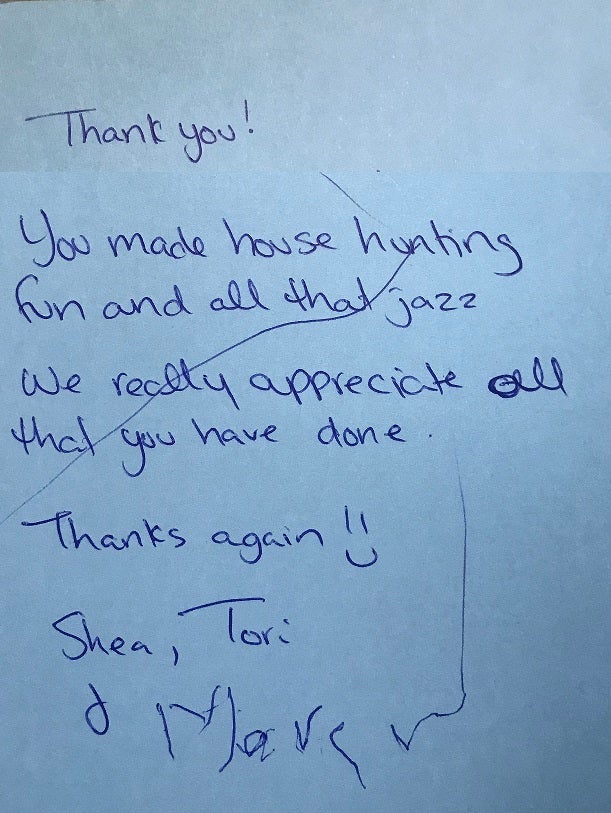 Thank you!
You made house hunting
fun and all that jazz
We really appreciate all
that you have done.
Thanks again !!
Shea, Tori
&